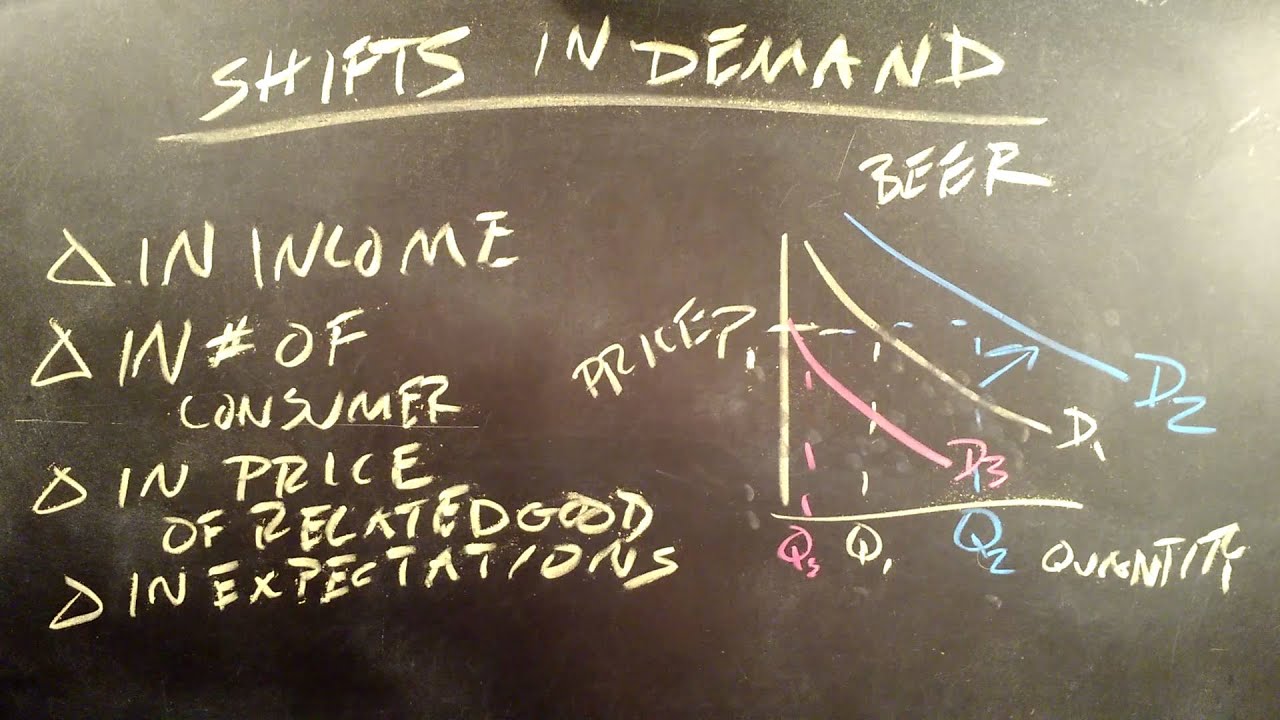 SHIFTS IN DEMAND
BEER
Δ IN INCOME
Δ IN # OF
CONSUMER
Δ IN PRICE
OF RELATED GOOD
Δ IN EXPECTATIONS
PRICE P₁
D₂
D₁
D₃
Q₃ Q₁ Q₂ QUANTITY